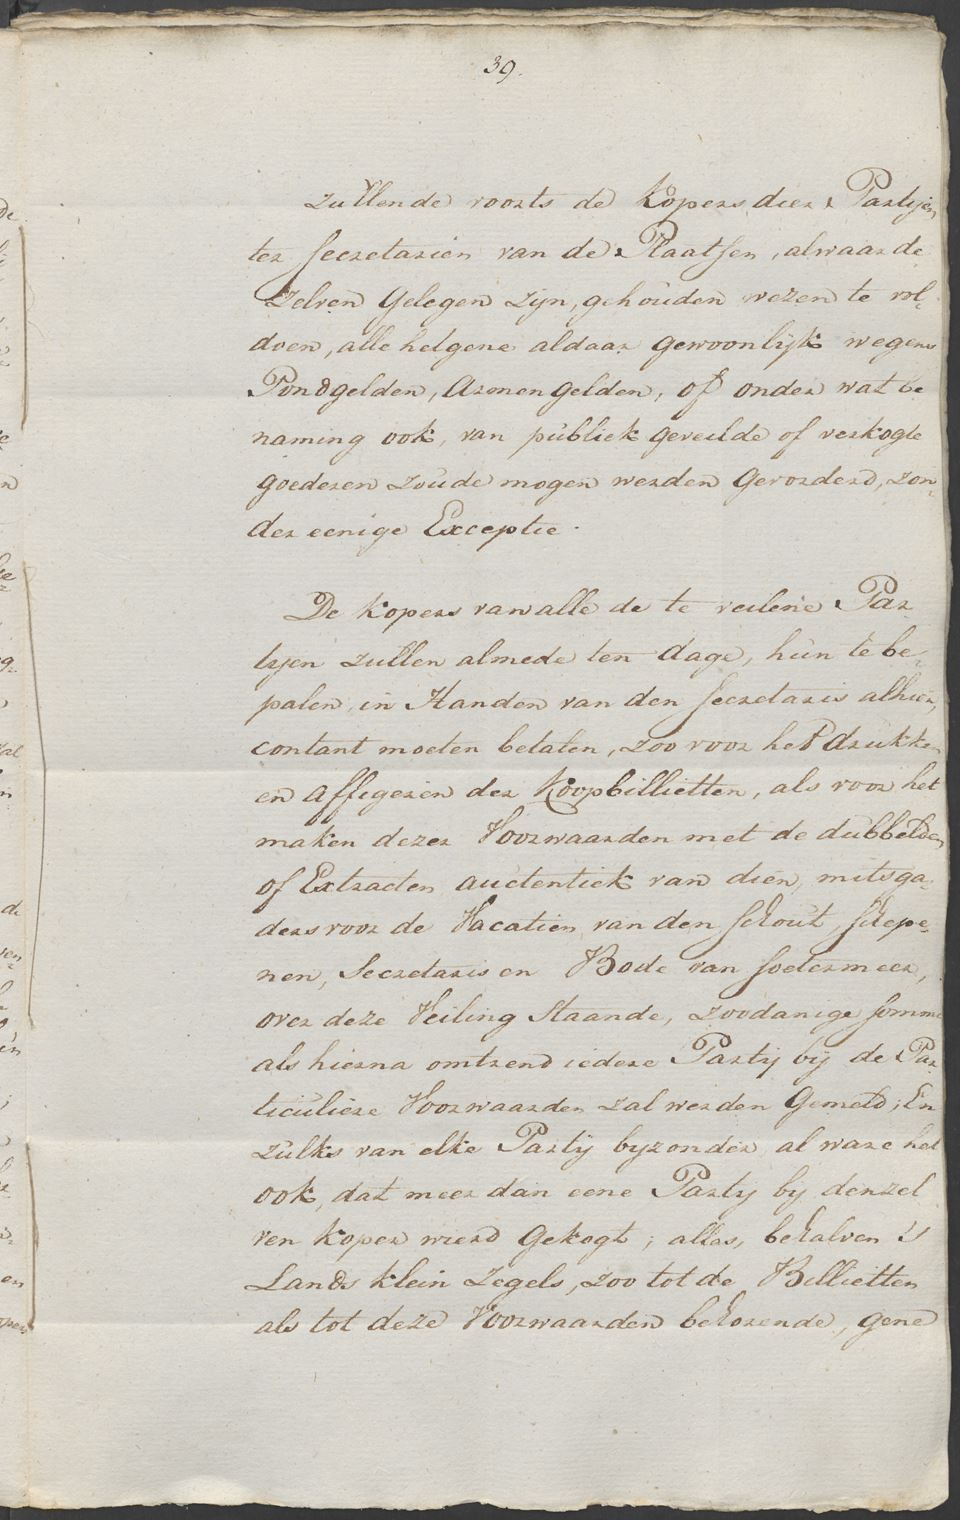 39.
zullende voorts de Kopers dier Partijen
ter Secretarien van de Plaatsen, alwaar de
Zelven Gelegen zijn, gehouden wezen te vol-
doen, alle hetgene aldaar gewoonlijk wegens
Pondgelden, Armengelden, of onder wat be
naming ook, van publiek geveilde of verkogte
goederen zoude mogen werden Gevorderd, zon-
der eenige Exceptie.
De Kopers van alle de te veilene Par
tyen zullen almede ten dage, hun te be-
palen, in Handen van den Secretaris alhier,
contant moeten betalen, zoo voor het drukken
en affigeren der Koopbillietten, als voor het
maken dezer Voorwaarden met de dubbelden
of Extracten auctentiek van dien, mitsga-
ders voor de Vacatien van den Schout, Schepe-
nen, Secretaris en Bode van Soetermeer,
over deze Veiling Staande, zoodanige somme
als hierna omtrend iedere Partij bij de Par
ticuliere Voorwaarden zal werden Gemeld; En
zulks van elke Partij byzonder al ware het
ook, dat meer dan eene Party by denzel
ven Koper wierd Gekogt; alles, behalven 's
Lands klein Zegels, zoo tot de Billietten
als tot deze Voorwaarden behorende, gene